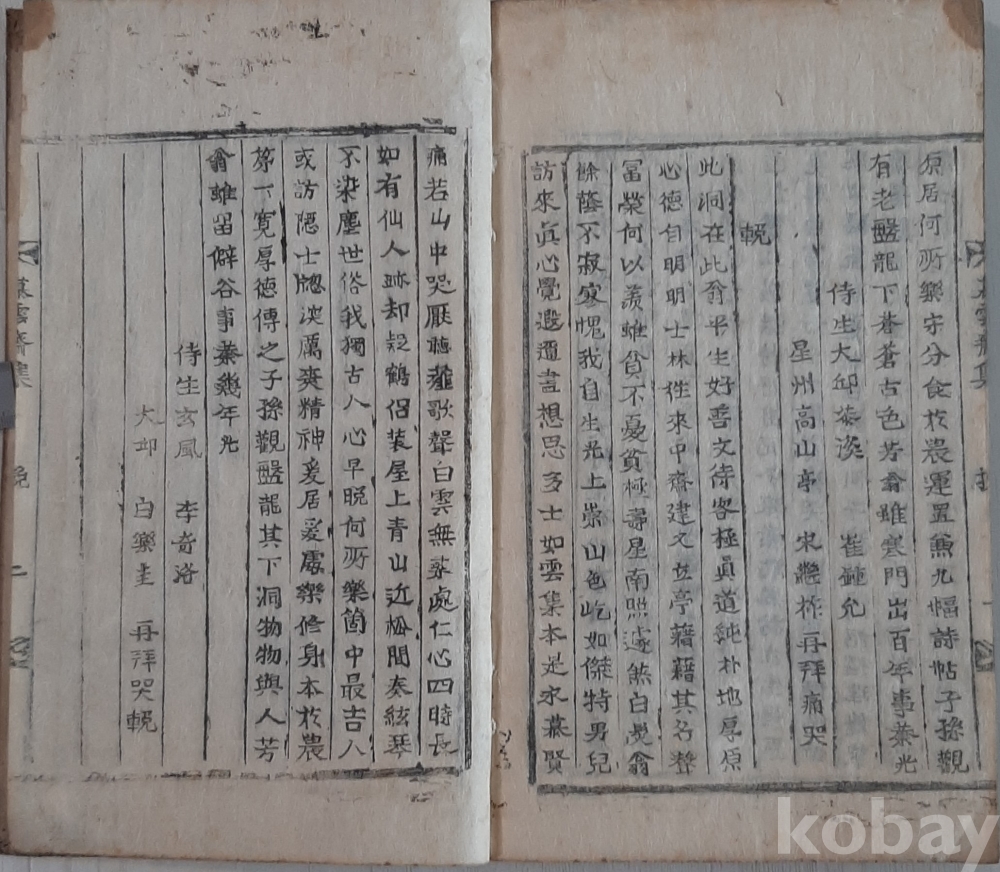 原居何所樂守分食於農運置兼九幅詩帖子孫觀
有老盤龍下蒼蒼古色芳翁雖寒門出百年事業光
侍生大邱泰渙 崔鍾允
星州高山亭 宋 柞再拜痛哭
輓
此洞在此翁平生好善文待客極眞道純朴地厚原
心德自明明士林往來中齋建又立亭藉藉其名聲
富榮何以羨雖貧不憂貧極壽星南照遽然白叟翁
餘蔭不寂寞愧我自生光上崇山色屹如傑特男兒
訪來眞心覺遐遺晝想思多士如雲集本是永慕賢
痛若山中哭厭聽薤歌聲白雲無盡處仁心四時長
如有仙人跡却疑鶴侶裝屋上靑山近松間奏絃琴
不染塵世俗我獨古人心早晩何所樂箇中最吉人
或訪隱士 淡厲爽精神爰居爰處樂修身本於農
第一寬厚德傳之子孫觀盤龍其下洞物物與人芳
翁雖留僻谷事業幾年光
侍生玄風 李奇洛
大邱 白樂圭 再拜哭輓
慕雲齋集 輓 二
kobay